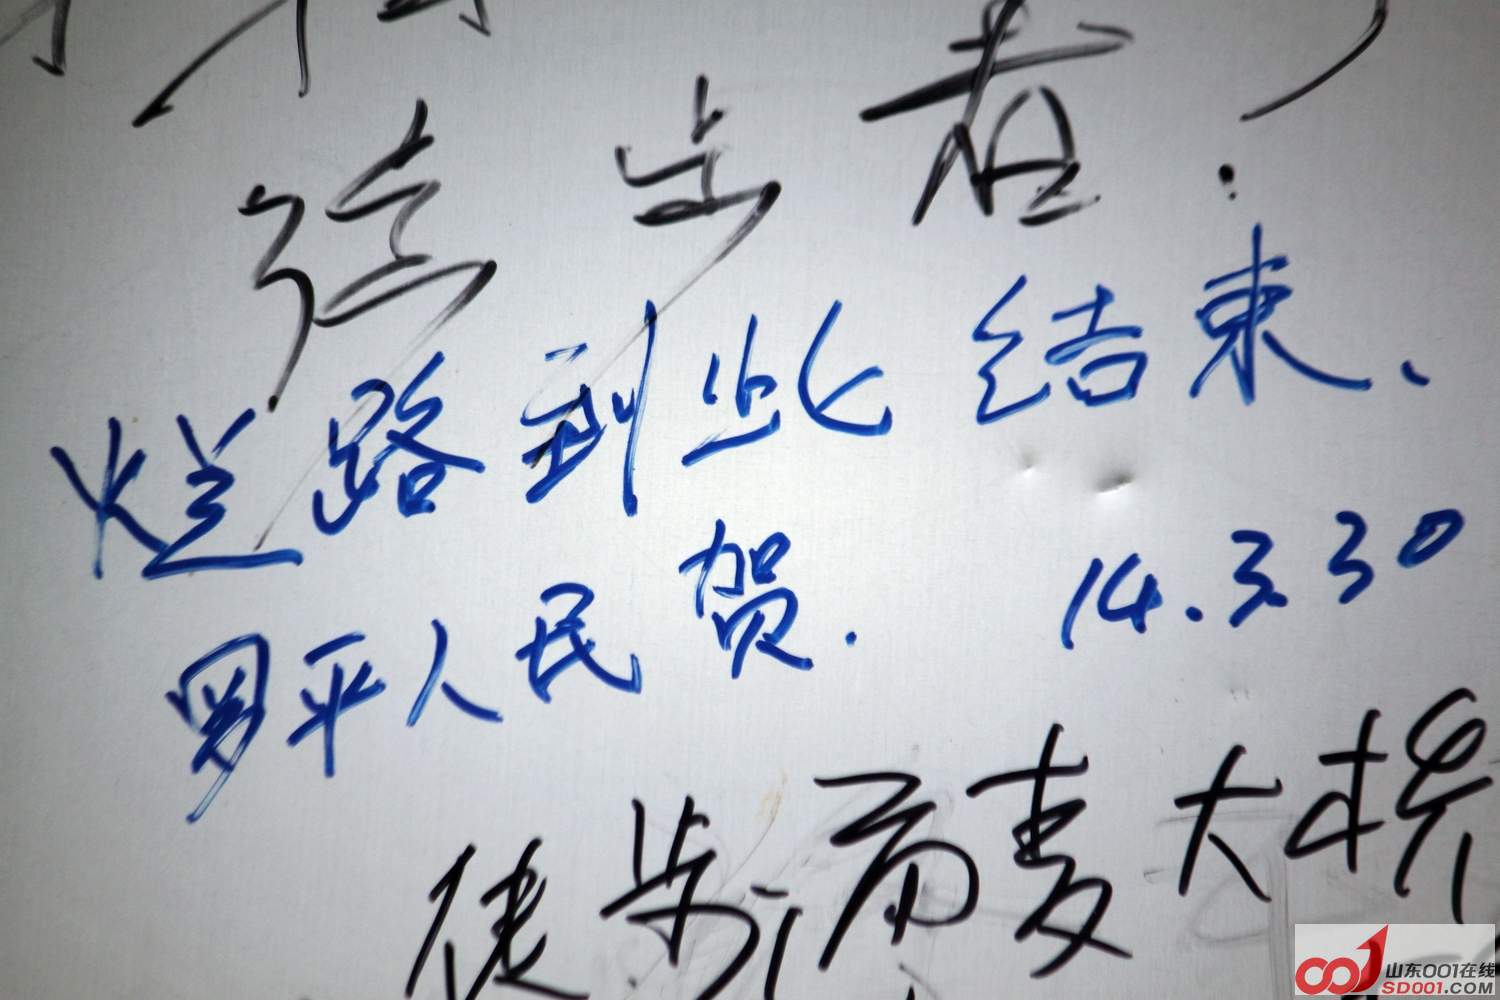 徒步者.
烂路到此结束、
罗平人民贺. 14.3.30
徒步, 荷麦大桥
山东001在线
SD001.COM